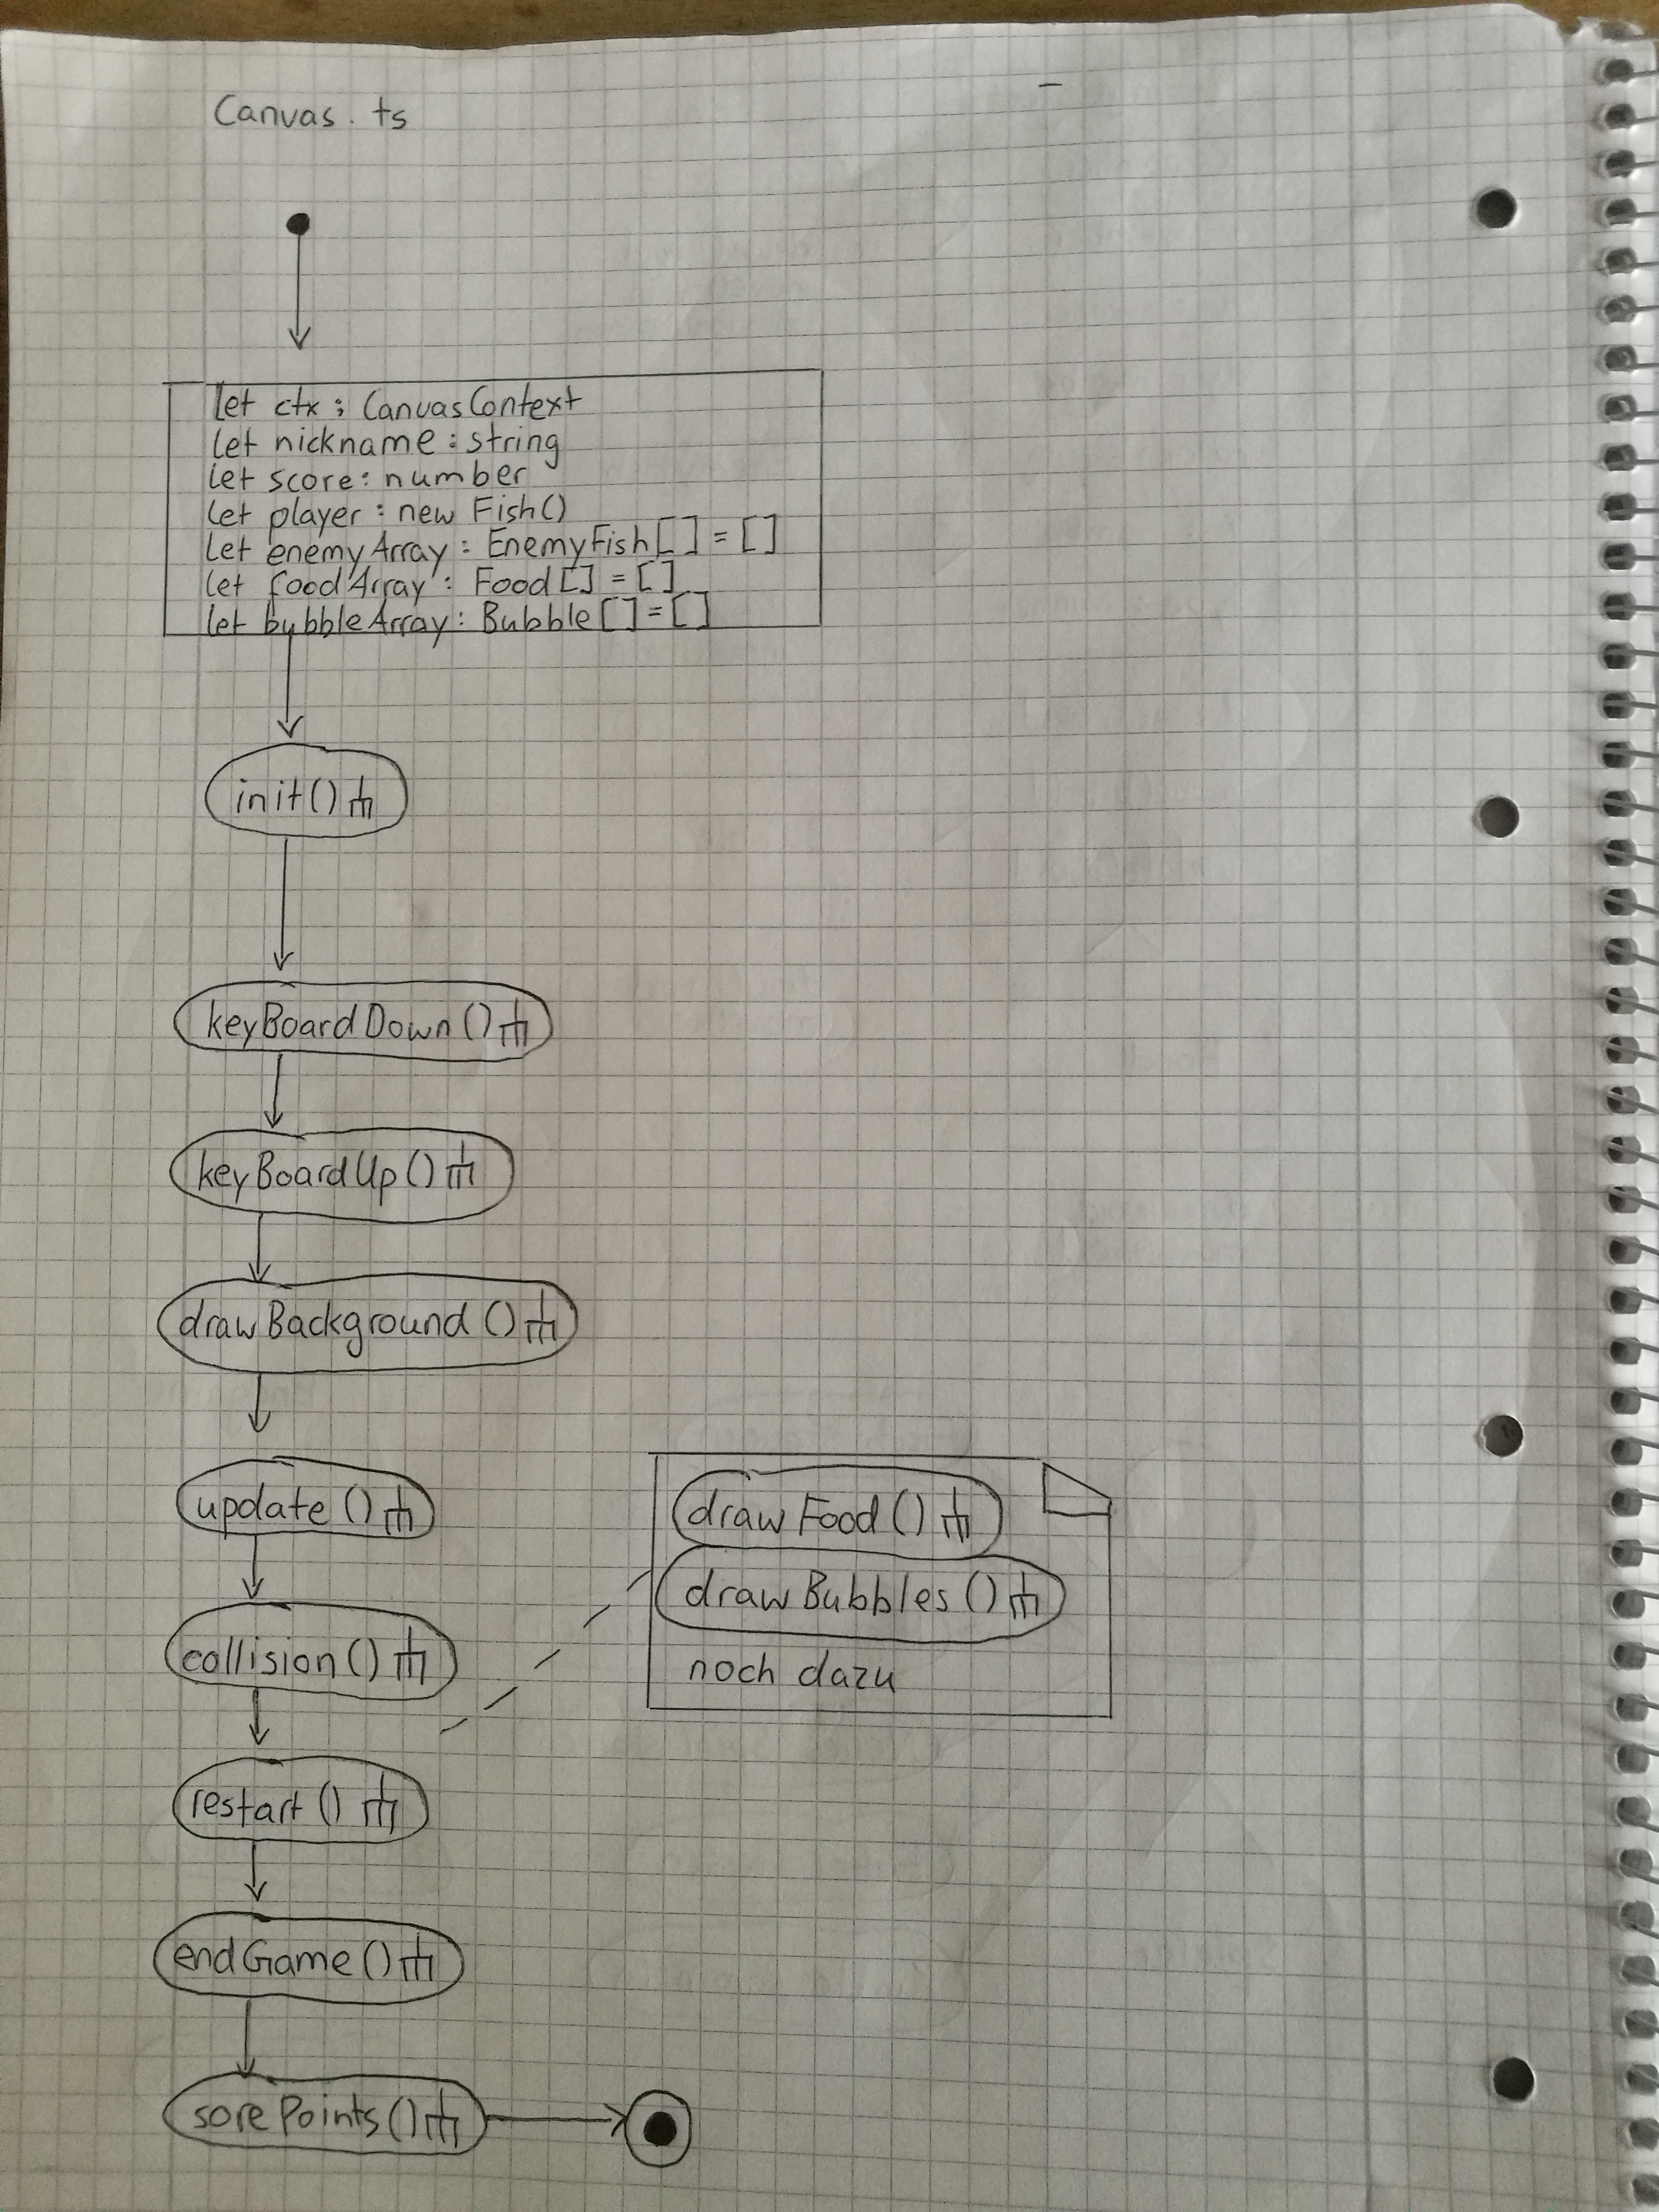 Canvas.ts
let ctx : CanvasContext
let nickname : string
let score : number
let player : new Fish()
let enemyArray : EnemyFish[] = []
let foodArray : Food[] = []
let bubbleArray : Bubble[] = []
init()
keyBoardDown()
keyBoardUp()
drawBackground()
update()
collision()
restart()
endGame()
sorePoints()
drawFood()
drawBubbles()
noch dazu